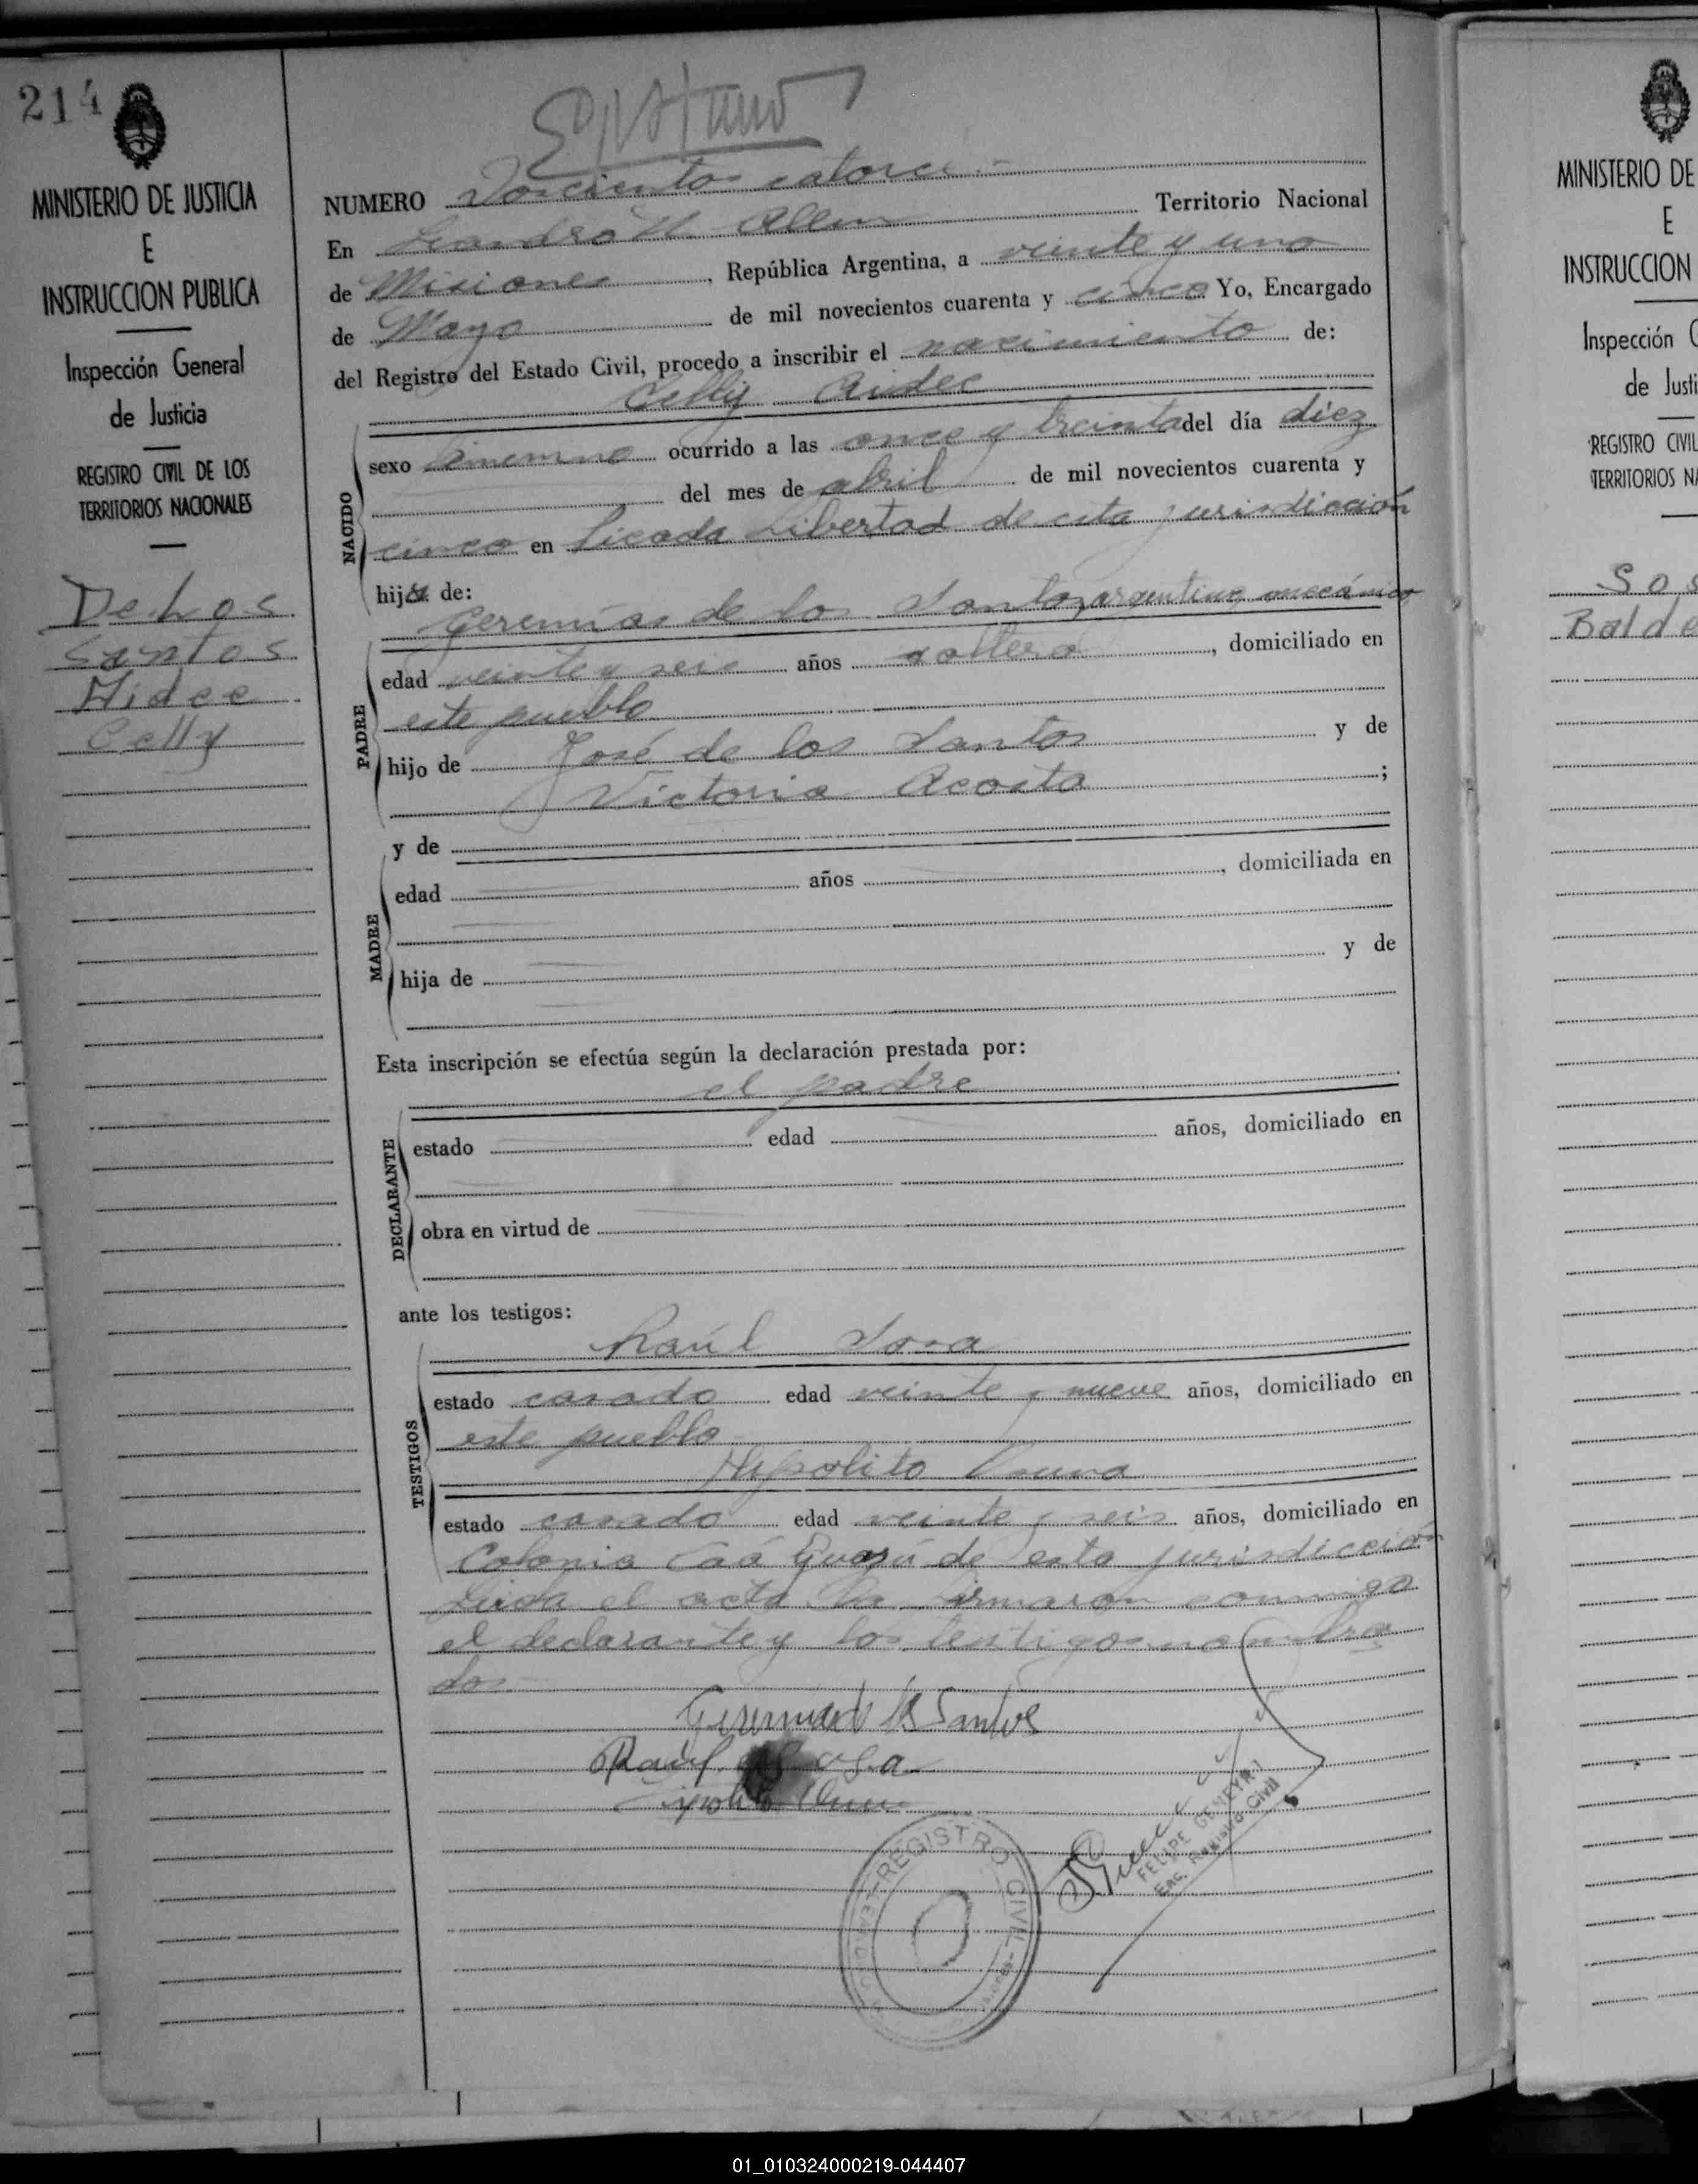 214
MINISTERIO DE JUSTICIA
E
INSTRUCCION PUBLICA
Inspección General
de Justicia
REGISTRO CIVIL DE LOS
TERRITORIOS NACIONALES
De Los
Santos
Aidee
Celly
NUMERO Doscientos catorce.-
En Leandro N. Alem Territorio Nacional
de Misiones, República Argentina, a veinte y uno
de Mayo de mil novecientos cuarenta y cinco Yo, Encargado
del Registro del Estado Civil, procedo a inscribir el nacimiento de:
Celly Aidee
NACIDO
sexo femenino ocurrido a las once y treinta del día diez
del mes de abril de mil novecientos cuarenta y
cinco en Picada Libertad de esta jurisdicción
hija de:
Geremías de los Santos, argentino, mecánico
PADRE
edad veinte y seis años soltero, domiciliado en
este pueblo
hijo de José de los Santos y de
Victoria Acosta;
MADRE
y de
edad años, domiciliada en
hija de y de
Esta inscripción se efectúa según la declaración prestada por:
el padre
DECLARANTE
estado edad años, domiciliado en
obra en virtud de
ante los testigos:
Raúl Sosa
TESTIGOS
estado casado edad veinte y nueve años, domiciliado en
este pueblo
Hipolito
estado casado edad veinte y seis años, domiciliado en
Colonia Caá Guazú de esta jurisdicción
Leida el acta la firmaron conmigo
el declarante y los testigos nombra
dos.-
Santos
Raúl Sosa
REGISTRO CIVIL
FELIPE
Enc. Registro Civil
MINISTERIO DE
E
INSTRUCCION
Inspección
de Justi
REGISTRO CIVIL
TERRITORIOS NA
Sos
Balde
01_010324000219-044407